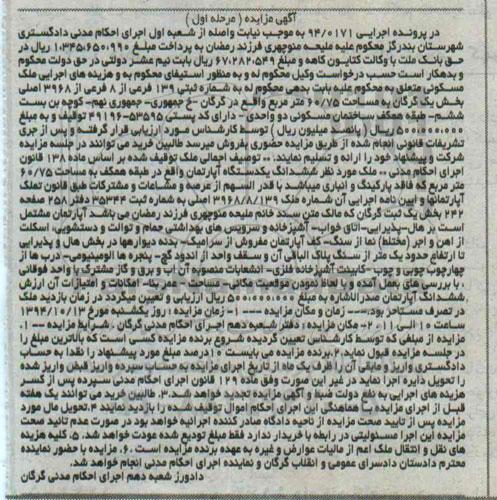 آگهی مزایده ( مرحله اول )
در پرونده اجرایی ۹۴/۰۱۷۱ به موجب نیابت واصله از شعبه اول اجرای احکام مدنی دادگستری
شهرستان بندرگز محکوم علیه ملیحه منوچهری فرزند رمضان به پرداخت مبلغ ۱،۳۴۵،۶۵۰،۹۹۰ ریال در
حق بانک ملت با وکالت کتایون کاهه و مبلغ ۶۷،۲۸۲،۵۴۹ ریال بابت نیم عشر دولتی در حق دولت محکوم
و بدهکار است حسب درخواست وکیل محکوم له و به منظور استیفای محکوم به و هزینه های اجرایی ملک
مسکونی متعلق به محکوم علیه بابت بدهی محکوم له به شماره ثبتی ۱۳۹ فرعی از ۸ فرعی از ۳۹۶۸ اصلی
بخش یک گرگان به مساحت ۶۰/۷۵ متر مربع واقع در گرگان -خ جمهوری- جمهوری نهم- کوچه بن بست
ششم- طبقه همکف ساختمان مسکونی دو واحدی - دارای کد پستی ۵۳۵۹۵-۴۹۱۹۶ توقیف و به مبلغ
۵۰۰،۰۰۰،۰۰۰ ریال ( پانصد میلیون ریال ) توسط کارشناس مورد ارزیابی قرار گرفته و پس از جری
تشریفات قانونی انجام شده از طریق مزایده حضوری بفروش میرسد طالبین خرید می توانند در جلسه مزایده
شرکت و پیشنهاد خود را ارائه و تسلیم نمایند. ** توصیف اجمالی ملک توقیف شده بر اساس ماده ۱۳۸ قانون
اجرای احکام مدنی ** ملک مورد نظر ششدانگ یکدستگاه آپارتمان واقع در طبقه همکف به مساحت ۶۰/۷۵
متر مربع که فاقد پارکینگ و انباری میباشد با قدر السهم از عرصه و مشاعات و مشترکات طبق قانون تملک
آپارتمانها و آیین نامه اجرایی آن شماره ملک ۳۹۶۸/۸/۱۳۹ اصلی به شماره ثبت ۳۵۳۴۴ دفتر ۲۵۸ صفحه
۲۴۲ بخش یک ثبت گرگان که مالک متن سند خانم ملیحه منوچهری فرزند رمضان می باشد آپارتمان مشتمل
است بر هال-پذیرایی-اتاق خواب- آشپزخانه و سرویس های بهداشتی حمام و توالت و دستشویی، اسکلت
از آهن و آجر (مختلط) نما از سنگ- کف آپارتمان مفروش از سرامیک- بدنه دیوارها در بخش هال و پذیرایی
تا ارتفاع حدود یک متر از سنگ پلاک الباقی آن و سقف واحد از اندود گچ- پنجره ها آلومینیومی- درب ها از
چهارچوب چوبی و چوب -کابینت آشپزخانه فلزی- انشعابات منصوبه آن آب و برق و گاز مشترک با واحد فوقانی
، با بررسی های بعمل آمده و با لحاظ نمودن موقعیت مکانی- مساحت- قدمت بنا- امکانات و امتیازات آن ارزش
ششدانگ آپارتمان صدرالاشاره به مبلغ ۵۰۰،۰۰۰،۰۰۰ ریال ارزیابی و تعیین میگردد در زمان بازدید ملک
در تصرف مستاجر بود. --- زمان و مکان مزایده -- ۱- زمان مزایده : روز یکشنبه مورخ ۱۳۹۴/۱۰/۱۳
ساعت ۱۰ الی ۱۱ .۲- مکان مزایده : دفتر شعبه دهم اجرای احکام مدنی گرگان . شرایط مزایده -- ۱.
مزایده از مبلغی که توسط کارشناس تعیین گردیده شروع برنده مزایده کسی است که بالاترین مبلغ را
در جلسه مزایده قبول نماید ۲.برنده مزایده می بایست ۱۰درصد مبلغ مورد پیشنهاد را نقدا به حساب
دادگستری واریز و مابقی آن را ظرف یک ماه از تاریخ اجرای مزایده به حساب سپرده واریز قبض واریز شده
را تحویل دایره اجرا نماید در غیر این صورت وفق ماده ۱۲۹ قانون اجرای احکام مدنی سپرده پس از کسر
هزینه های اجرایی به نفع دولت ضبط و آگهی مزایده تجدید خواهد شد.۳. طالبین خرید می توانند یک هفته
قبل از اجرای مزایده با هماهنگی این اجرای احکام اموال توقیف شده را بازدید نمایند ۴.تحویل مال مورد
مزایده پس از تایید صحت مزایده از ناحیه دادگاه صادر کننده اجرائیه خواهد بود در صورت عدم تائید صحت
مزایده این اجرا مسئولیتی در رابطه با خریدار ندارد فقط مبلغ تودیع شده عودت خواهد شد. ۵. کلیه هزینه
های نقل و انتقال ملک اعم از مالیات عوارض و غیره به عهده برنده مزایده است . ۶. مزایده با حضور نماینده
محترم دادستان دادسرای عمومی و انقلاب گرگان و نماینده اجرای احکام مدنی انجام خواهد شد.
دادورز شعبه دهم اجرای احکام مدنی گرگان